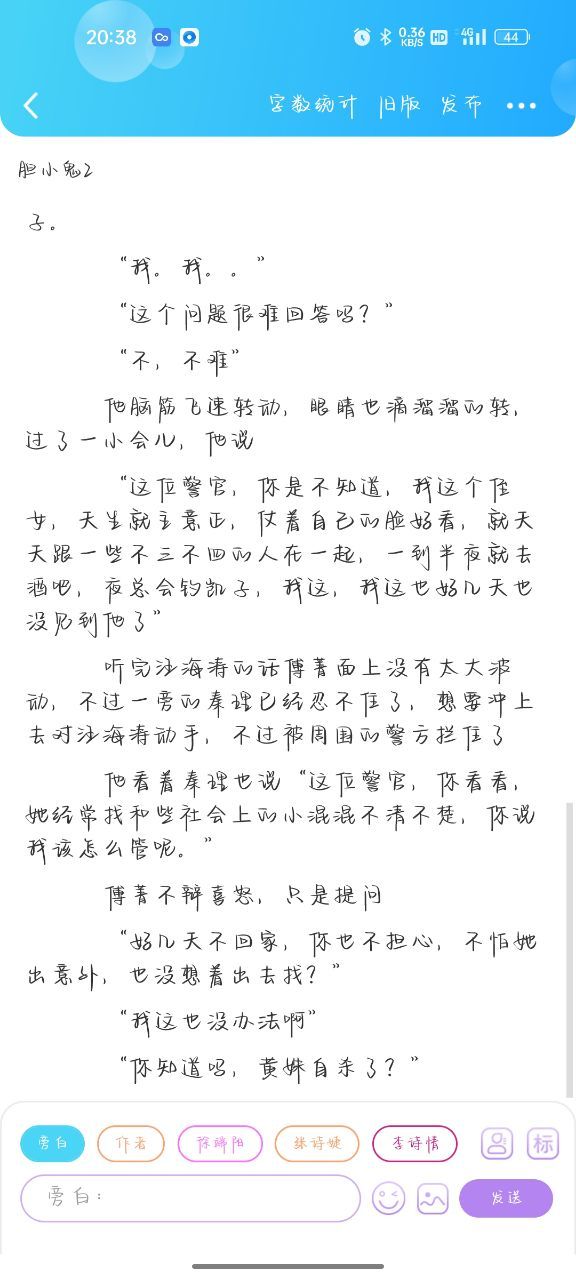 20:38
0.36
KB/S
HD
4G
44
字数统计 旧版 发布
胆小鬼2
子。
“我。我。。”
“这个问题很难回答吗？”
“不，不难”
他脑筋飞速转动，眼睛也滴溜溜的转，
过了一小会儿，他说
“这位警官，你是不知道，我这个侄
女，天生就主意正，仗着自己的脸好看，就天
天跟一些不三不四的人在一起，一到半夜就去
酒吧，夜总会钓凯子，我这，我这也好几天也
没见到他了”
听完汪海涛的话傅菁面上没有太大波
动，不过一旁的秦理已经忍不住了，想要冲上
去对汪海涛动手，不过被周围的警方拦住了
他看着秦理也说“这位警官，你看看，
她经常找和些社会上的小混混不清不楚，你说
我该怎么管呢。”
傅菁不辩喜怒，只是提问
“好几天不回家，你也不担心，不怕她
出意外，也没想着出去找？”
“我这也没办法啊”
“你知道吗，黄姝自杀了？”
旁白 作者 徐端阳 张诗婕 李诗情 标
旁白： 发送